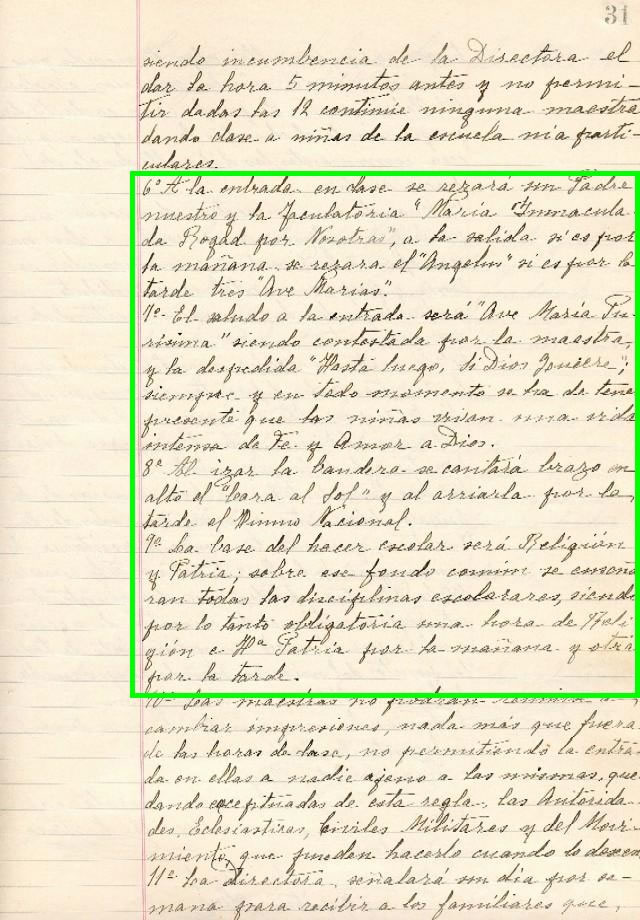 31
siendo incumbencia de la Directora el
dar la hora 5 minutos antes y no permi-
tir dadas las 12 continúe ninguna maestra
dando clase a niñas de la escuela ni a parti-
culares.
6º A la entrada en clase se rezará un Padre
nuestro y la Jaculatoria "María Inmacula-
da Rogad por Nosotras", a la salida si es por
la mañana se rezara el "Angelus" si es por la
tarde tres "Ave Marias".
7º- El saludo a la entrada será "Ave María Pu-
rísima" siendo contestada por la maestra,
y la despedida "Hasta luego, si Dios quiere";
siempre y en todo momento se ha de tene
presente que las niñas vivan una vida
intensa de Fe y Amor a Dios.
8ª Al izar la bandera se cantará brazo en
alto el "Cara al Sol" y al arriarla por la
tarde el Himno Nacional.
9ª La base del hacer escolar será Religión
y Patria; sobre ese fondo común se enseña
ran todas las disciplinas escolares, siendo
por lo tanto obligatoria una hora de Reli
gión e Hª Patria por la mañana y otra
por la tarde.
10ª Las maestras no podrán reunirse a
cambiar impresiones, nada más que fuera
de las horas de clase, no permitiendo la entra
da en ellas a nadie ajeno a las mismas, que
dando exceptuadas de esta regla, las Autorida-
des, Eclesiasticas, Civiles Militares y del Movi-
miento, que pueden hacerlo cuando lo deseen
11ª La directora, señalará un día por se-
mana para recibir a los familiares que,